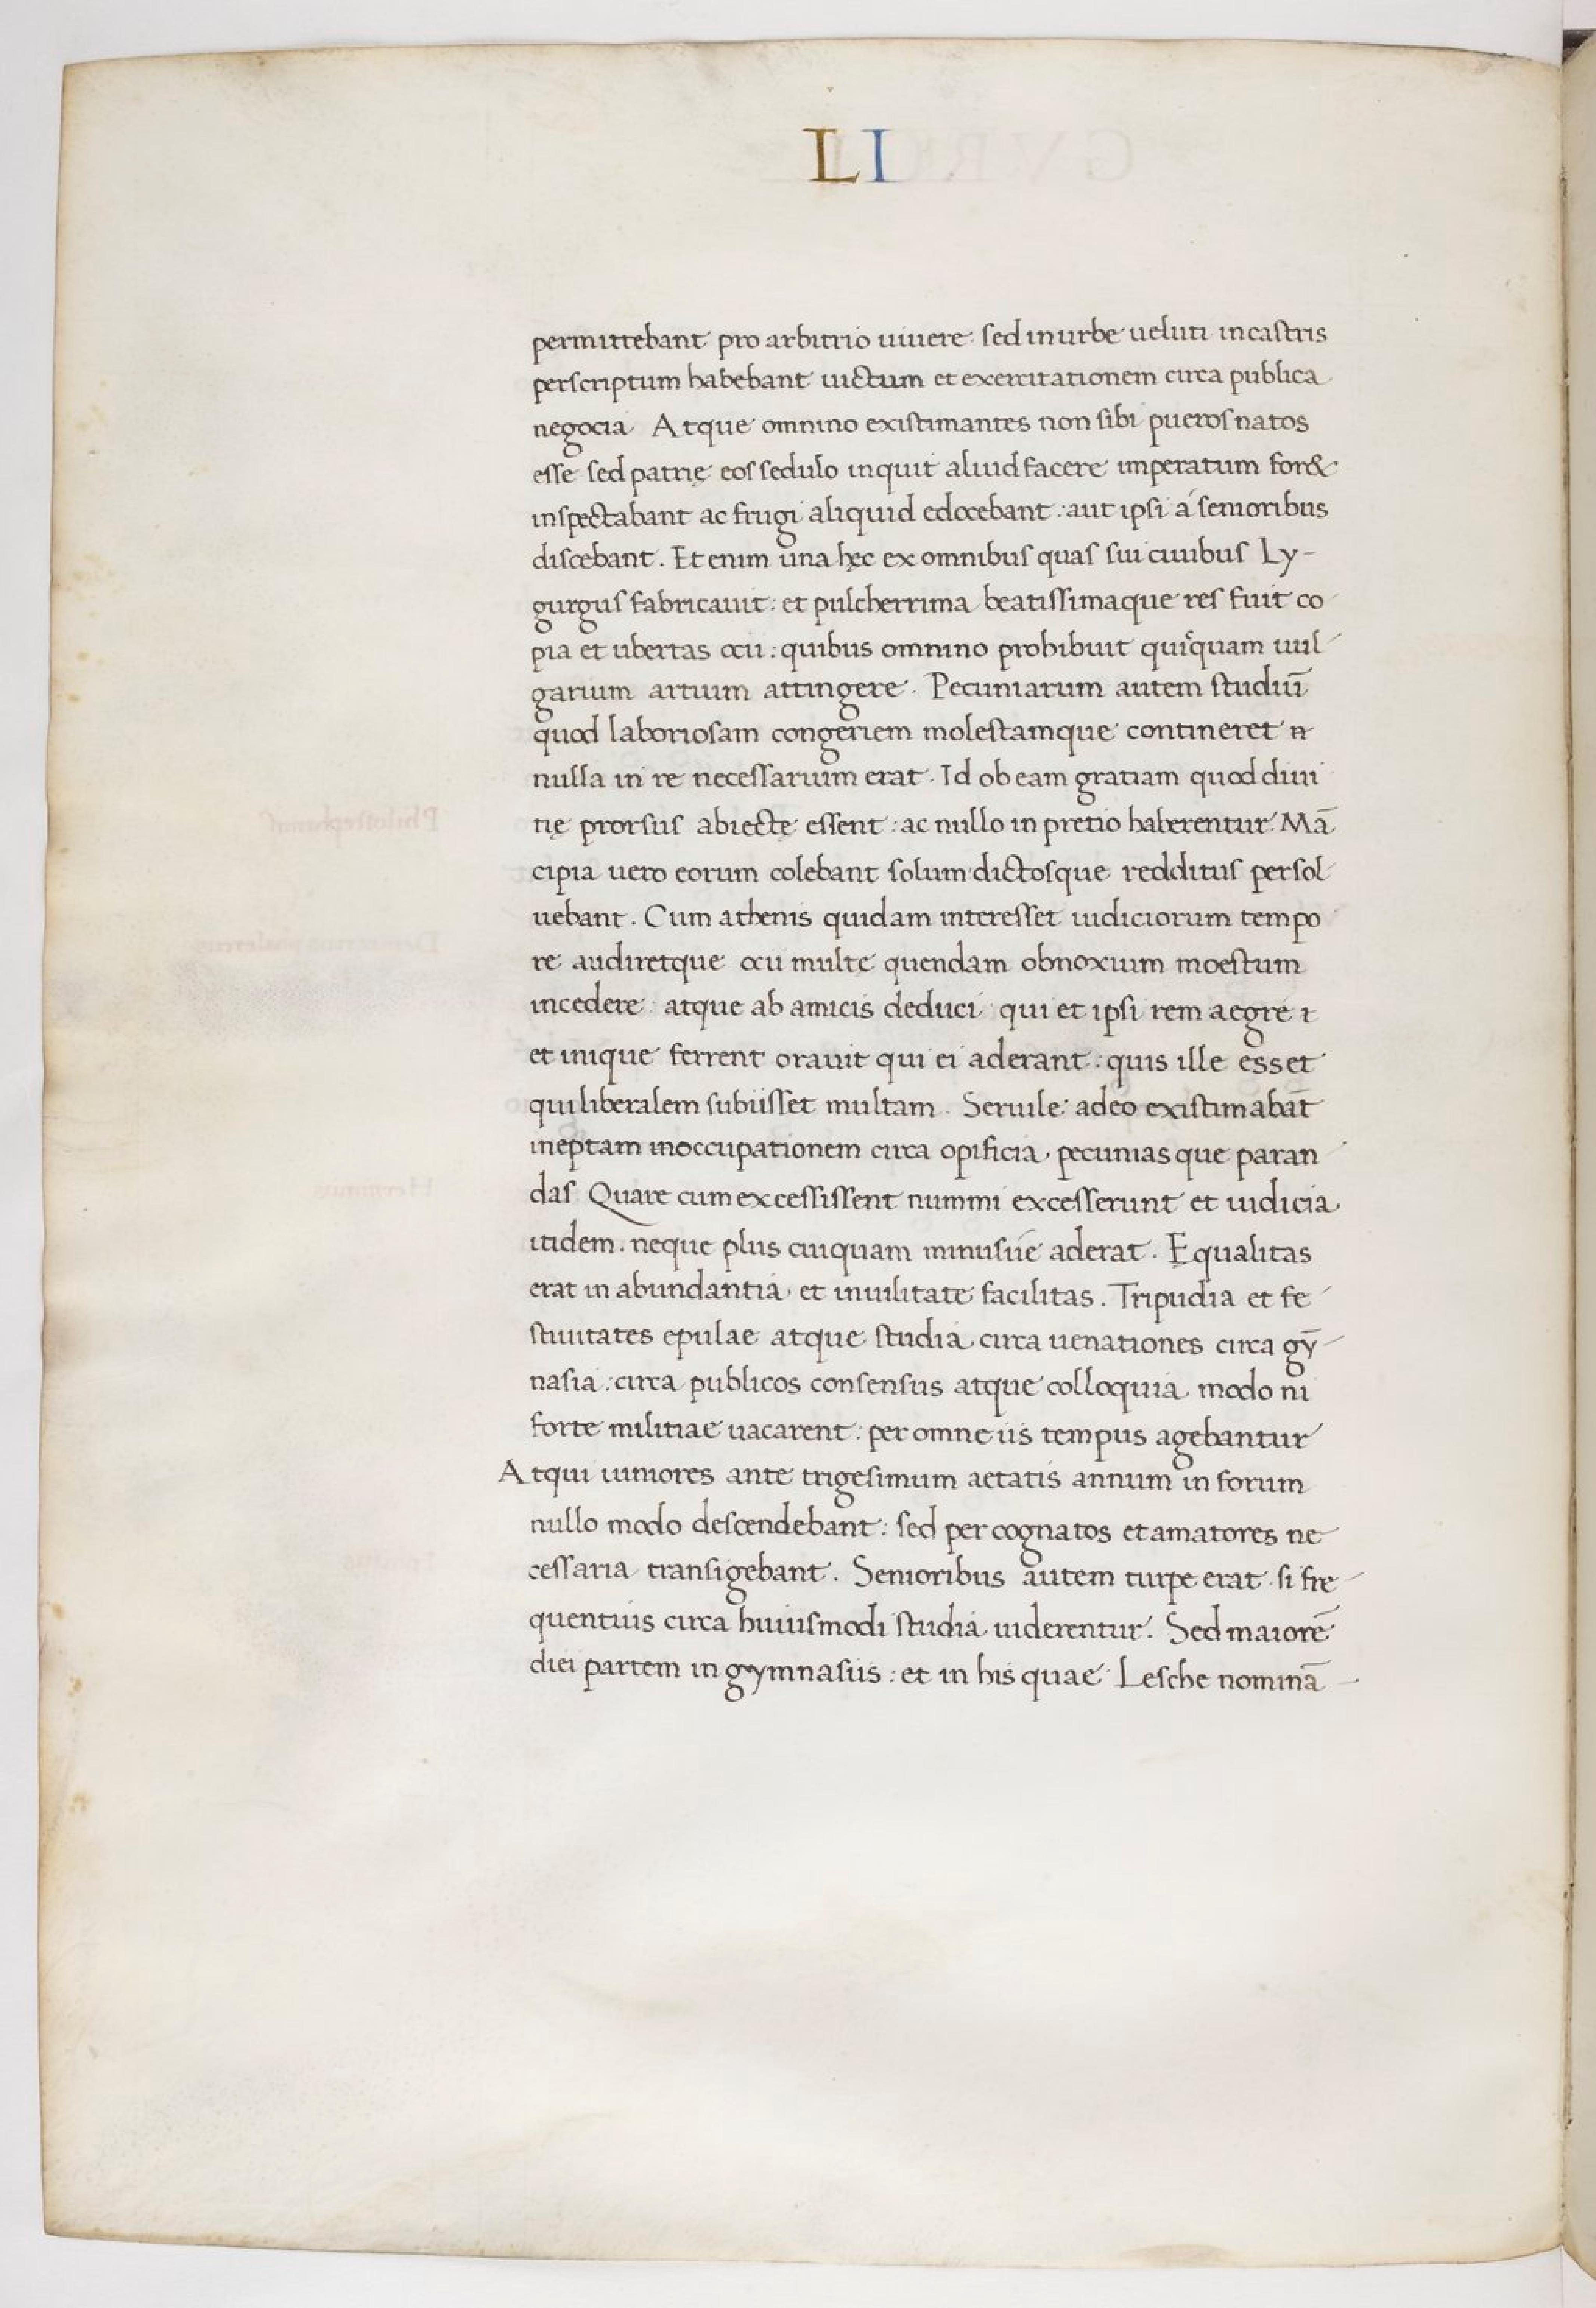 LI
permittebant pro arbitrio uiuere: sed in urbe ueluti in castris
perscriptum habebant uictum et exercitationem circa publica
negocia. Atque omnino existimantes non sibi pueros natos
esse sed patrię eos sedulo inquit aliud facere imperatum for&
inspectabant ac frugi aliquid edocebant: aut ipsi á senioribus
discebant. Et enim una hęc ex omnibus quas sui ciuibus Ly-
gurgus fabricauit: et pulcherrima beatissimaque res fuit co
pia et ubertas ocii: quibus omnino prohibuit quicquam uul
garium artium attingere. Pecuniarum autem studiū
quod laboriosam congeriem molestamque contineret
nulla in re necessarium erat. Id ob eam gratiam quod diui
tię prorsus abiectę essent: ac nullo in pretio haberentur. Mā
cipia uero eorum colebant solum dictosque redditus persol
uebant. Cum athenis quidam interesset iudiciorum tempo
re audiretque ocii multę quendam obnoxium moestum
incedere: atque ab amicis deduci qui et ipsi rem aegre ı
et inique ferrent orauit qui ei aderant: quis ille esset
qui liberalem subiisset multam. Seruile: adeo existimabāt
ineptam inoccupationem circa opificia, pecunias que paran
das. Quare cum excessissent nummi excesserunt et iudicia
itidem. neque plus cuiquam minusue aderat. Equalitas
erat in abundantia, et in uilitate facilitas. Tripudia et fe
stiuitates epulae atque studia, circa uenationes circa gȳ
nasia: circa publicos consensus atque colloquia modo ni
forte militiae uacarent: per omne iis tempus agebantur
Atqui iuniores ante trigesimum aetatis annum in forum
nullo modo descendebant: sed per cognatos et amatores ne
cessaria transigebant. Senioribus autem turpe erat si fre
quentius circa huiusmodi studia uiderentur. Sed maiorē
diei partem in gymnasiis: et in his quae Lesche nominā